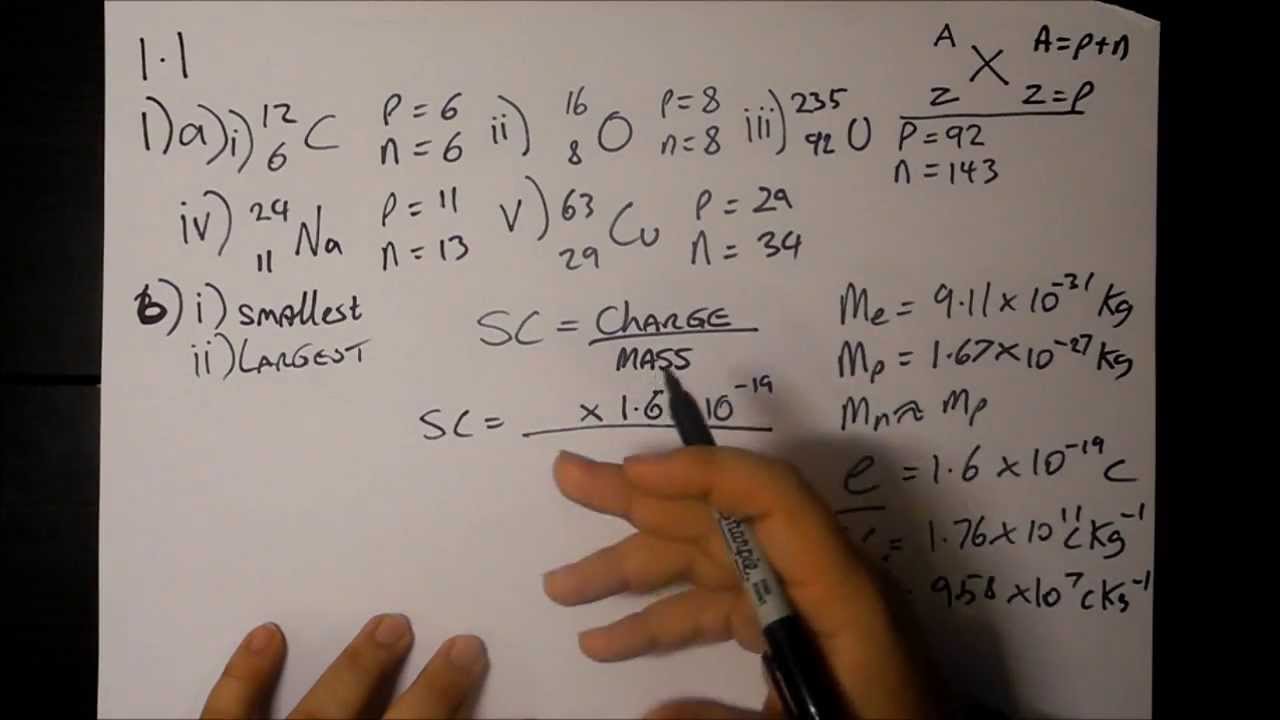 1.1
A X Z A=p+n
Z=P
1)a)i) 12 6 C P=6 n=6 ii) 16 8 O P=8 n=8 iii) 235 92 U P=92 n=143
iv) 24 11 Na P=11 n=13 v) 63 29 Cu P=29 n=34
b) i) smallest
ii) LARGEST
SC = CHARGE / MASS
SC = × 1.6 10⁻¹⁹
Me = 9.11 × 10⁻³¹ kg
Mp = 1.67 × 10⁻²⁷ kg
Mn ≈ Mp
e = 1.6 × 10⁻¹⁹ C
= 1.76 × 10¹¹ C kg⁻¹
9.58 × 10⁷ C kg⁻¹
Sharpie